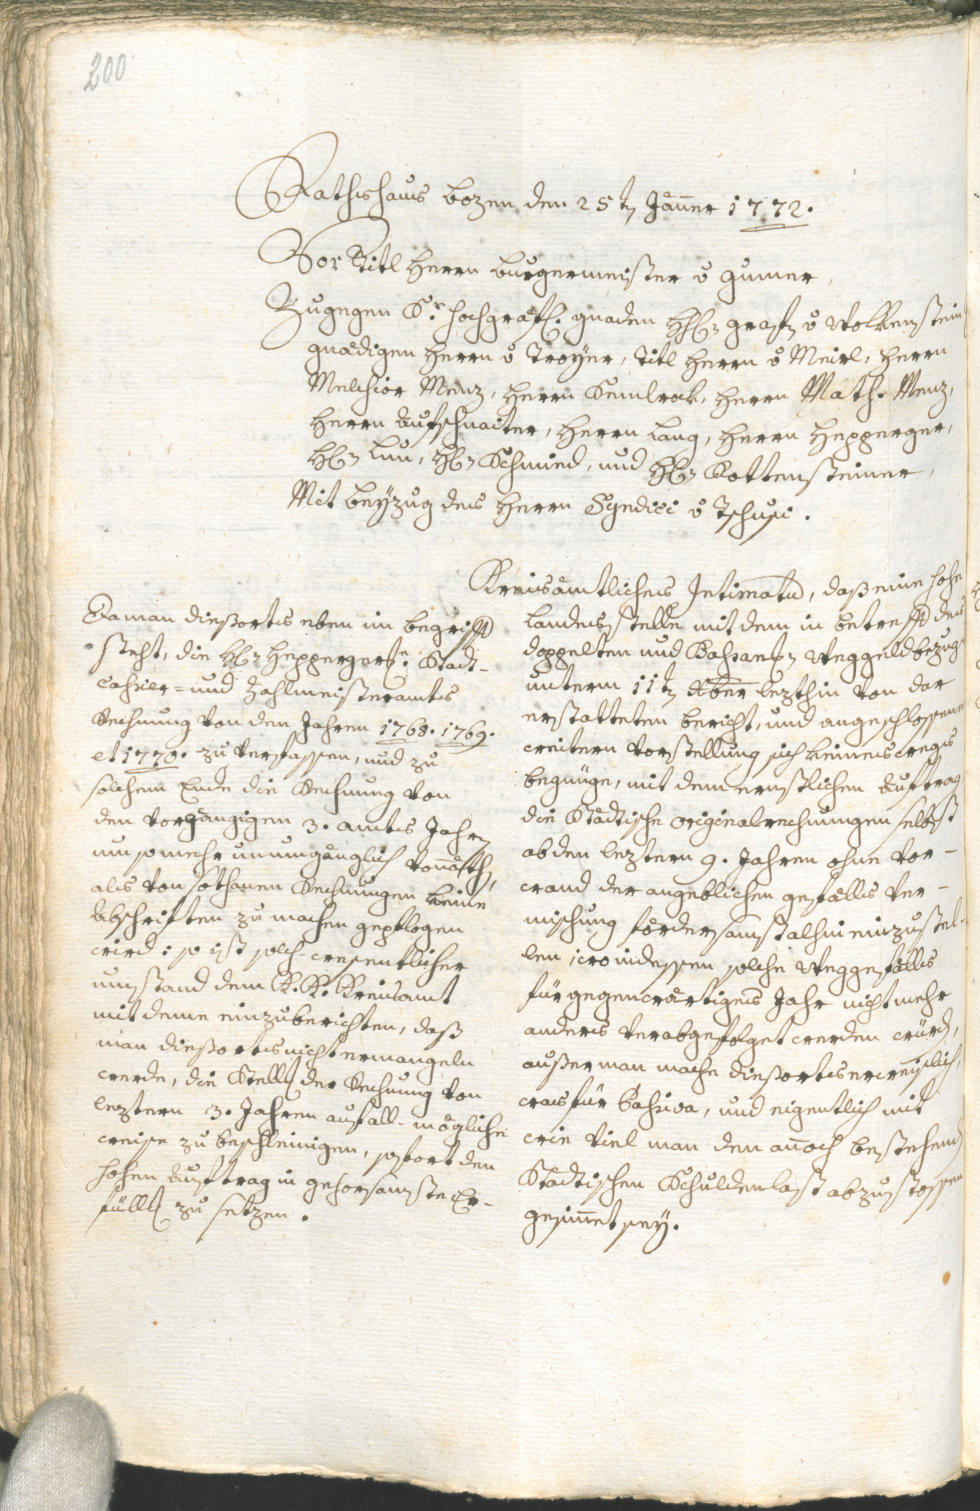 200
Rathshaus bozen den 25t Jäner 1772.
Vor Titl Herrn burgermeister v gumer,
Zugegen Sr hochgräfl: gnaden H: grafen v Wolkenstein
gnädigen Herrn v Troyer, Titl Herrn v Meirl, Herrn
Melchior Menz, Herrn Kemlrock, Herrn Math: Menz,
Herrn Aufschnaiter, Herrn Lang, Herrn Hepperger,
H: Lun, H: Schmied, und H: Rottensteiner,
Mit beyzug des Herrn Syndici v Tschusi.
Da man diessorts eben im begriff
steht, die H: Heppergerse: Stadt-
Cassier- und Zahlmeisteramts
Rechnung von den Jahren 1768. 1769.
et 1770. zu verfassen, und zu
solchem Ende die Rechnung von
den vorgängigen 3. amts Jahrn
um so mehr unumgänglich vonnöth,
als von sothanen Rechnungen keine
Abschriften zu machen gepflogen
wird: so ist solch wesentlicher
umstand dem K. K. Kreisamt
mit deme einzuberichten, daß
man diessorts nicht ermanglen
werde, die Stell der Rechnung von
leztern 3. Jahren auf all-mögliche
weise zu beschleinigen, sofort den
hohen Auftrag in gehorsamste Er-
füll zu setzen.
Kreisämtliches Intimatu, daß eine hohe
Landesstelle mit dem in betreff des
doppelten und Weggeldbezug
unterm 11t xber lezthin von dar
erstatteten bericht, und angeschlossene
weitern Vorstellung sich keineswegs
begnüge, mit dem ernstlichen Auftrag
die Städtische originalrechnungen selbst
ab den leztern 9. Jahren ohne Vor-
wand der angeblichen gefälls Ver-
mischung fördersamst alhin einzustel-
len, wo indessen solche Weggefälls
für gegenwärtiges Jahr nicht mehr
anders verabgefolget werden würd,
ausser man mache diessorts erweislich,
was für passiva, und eigentlich mit
wie viel man den annoch bestehend
Städtischen Schuldenlast abzustossen
gesinnet sey.